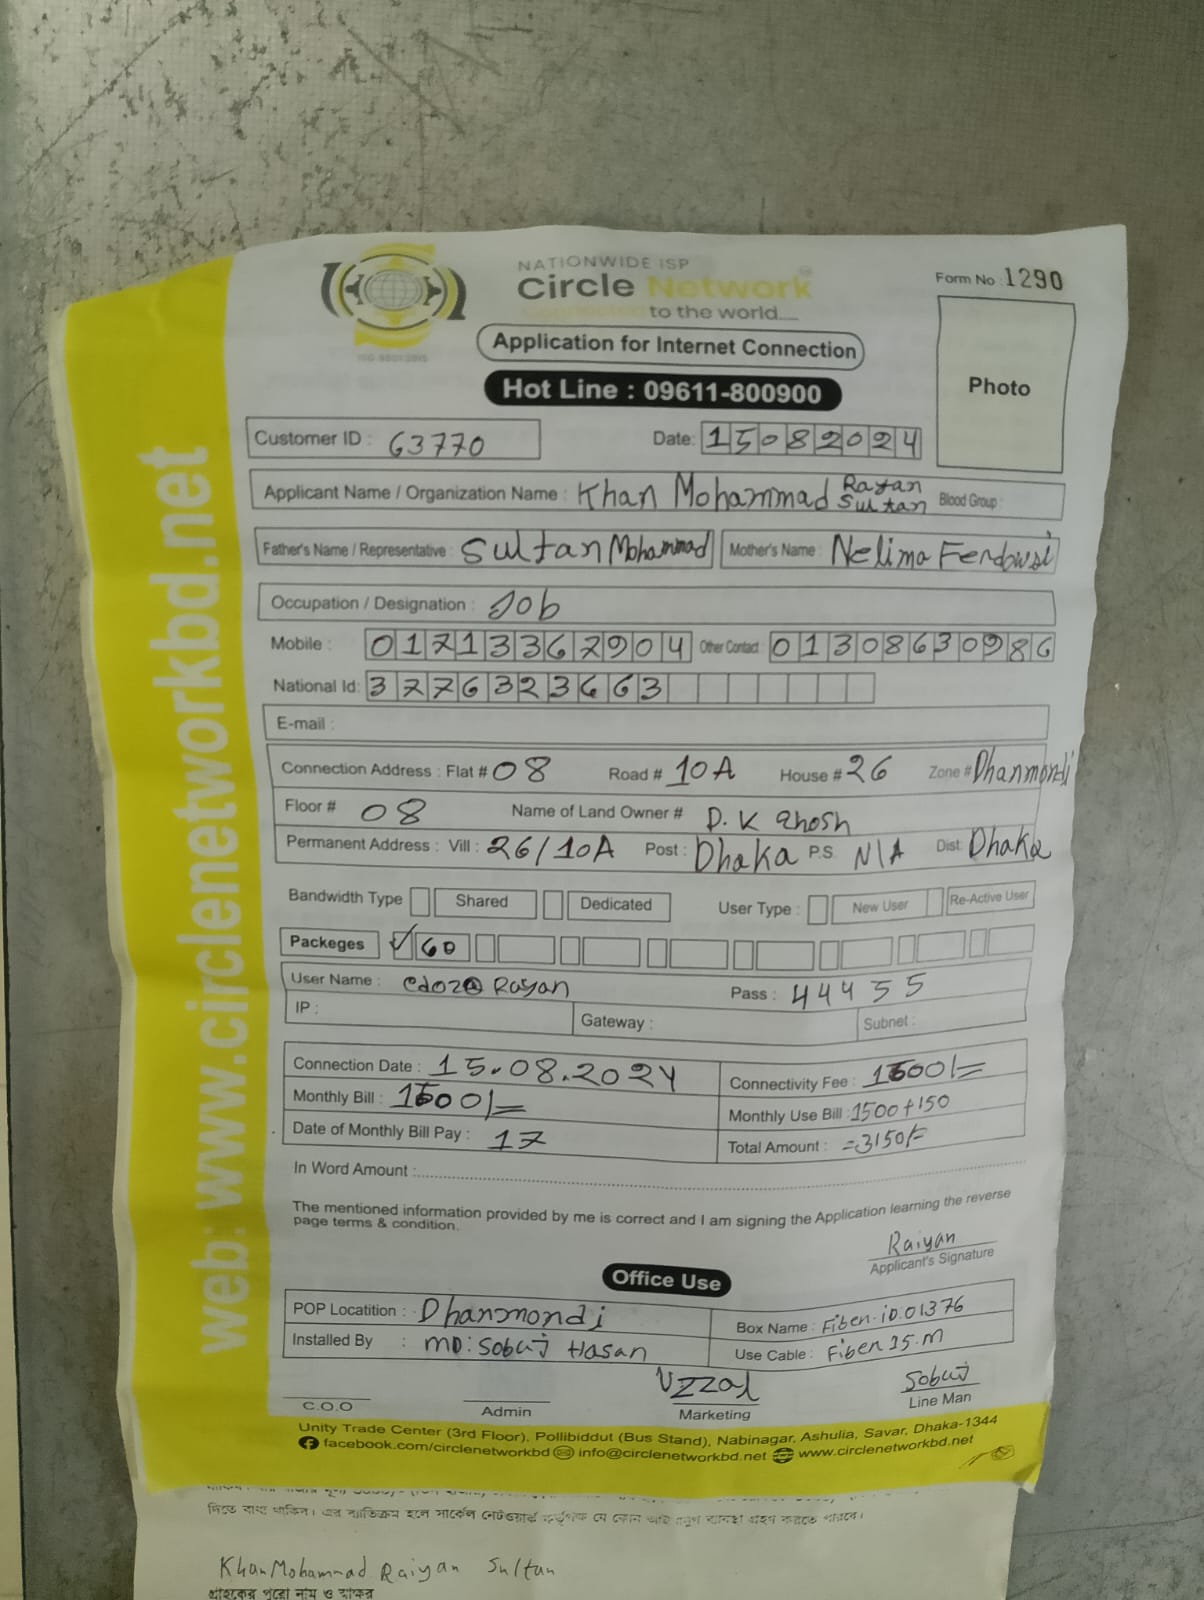 NATIONWIDE ISP
Circle Network
Connected to the world....
ISO 9001:2015
Form No : 1290
Application for Internet Connection
Hot Line : 09611-800900
Photo
Customer ID : 63770
Date: 15082024
Applicant Name / Organization Name : Khan Mohammad Rayan Sultan Blood Group :
Father's Name / Representative : Sultan Mohammad Mother's Name : Nelima Ferdowsi
Occupation / Designation : Job
Mobile : 01713367904 Other Contact : 01308630986
National Id: 3776323663
E-mail :
Connection Address : Flat # 08 Road # 10A House # 26 Zone # Dhanmondi
Floor # 08 Name of Land Owner # D. K Ghosh
Permanent Address : Vill : 26/10A Post : Dhaka P.S. N/A Dist: Dhaka
Bandwidth Type Shared Dedicated User Type : New User Re-Active User
Packeges ✓ 60
User Name : Rayan Pass : 44455
IP : Gateway : Subnet :
Connection Date : 15.08.2024 Connectivity Fee : 1500/=
Monthly Bill : 1500/= Monthly Use Bill : 1500+150
Date of Monthly Bill Pay : 17 Total Amount : =3150/=
In Word Amount :
The mentioned information provided by me is correct and I am signing the Application learning the reverse
page terms & condition.
Raiyan
Applicant's Signature
Office Use
POP Locatition : Dhanmondi Box Name : Fiber-iD.01376
Installed By : MD: Sobuj Hasan Use Cable : Fiber 35.m
Uzzal Sobuj
C.O.O Admin Marketing Line Man
Unity Trade Center (3rd Floor), Pollibiddut (Bus Stand), Nabinagar, Ashulia, Savar, Dhaka-1344
facebook.com/circlenetworkbd info@circlenetworkbd.net www.circlenetworkbd.net
web: www.circlenetworkbd.net
দিতে বাধ্য থাকিব। এর ব্যতিক্রম হলে সার্কেল নেটওয়ার্ক কর্তৃপক্ষ যে কোন ব্যবস্থা গ্রহণ করতে পারবে।
Khan Mohammad Raiyan Sultan
গ্রাহকের পুরো নাম ও স্বাক্ষর